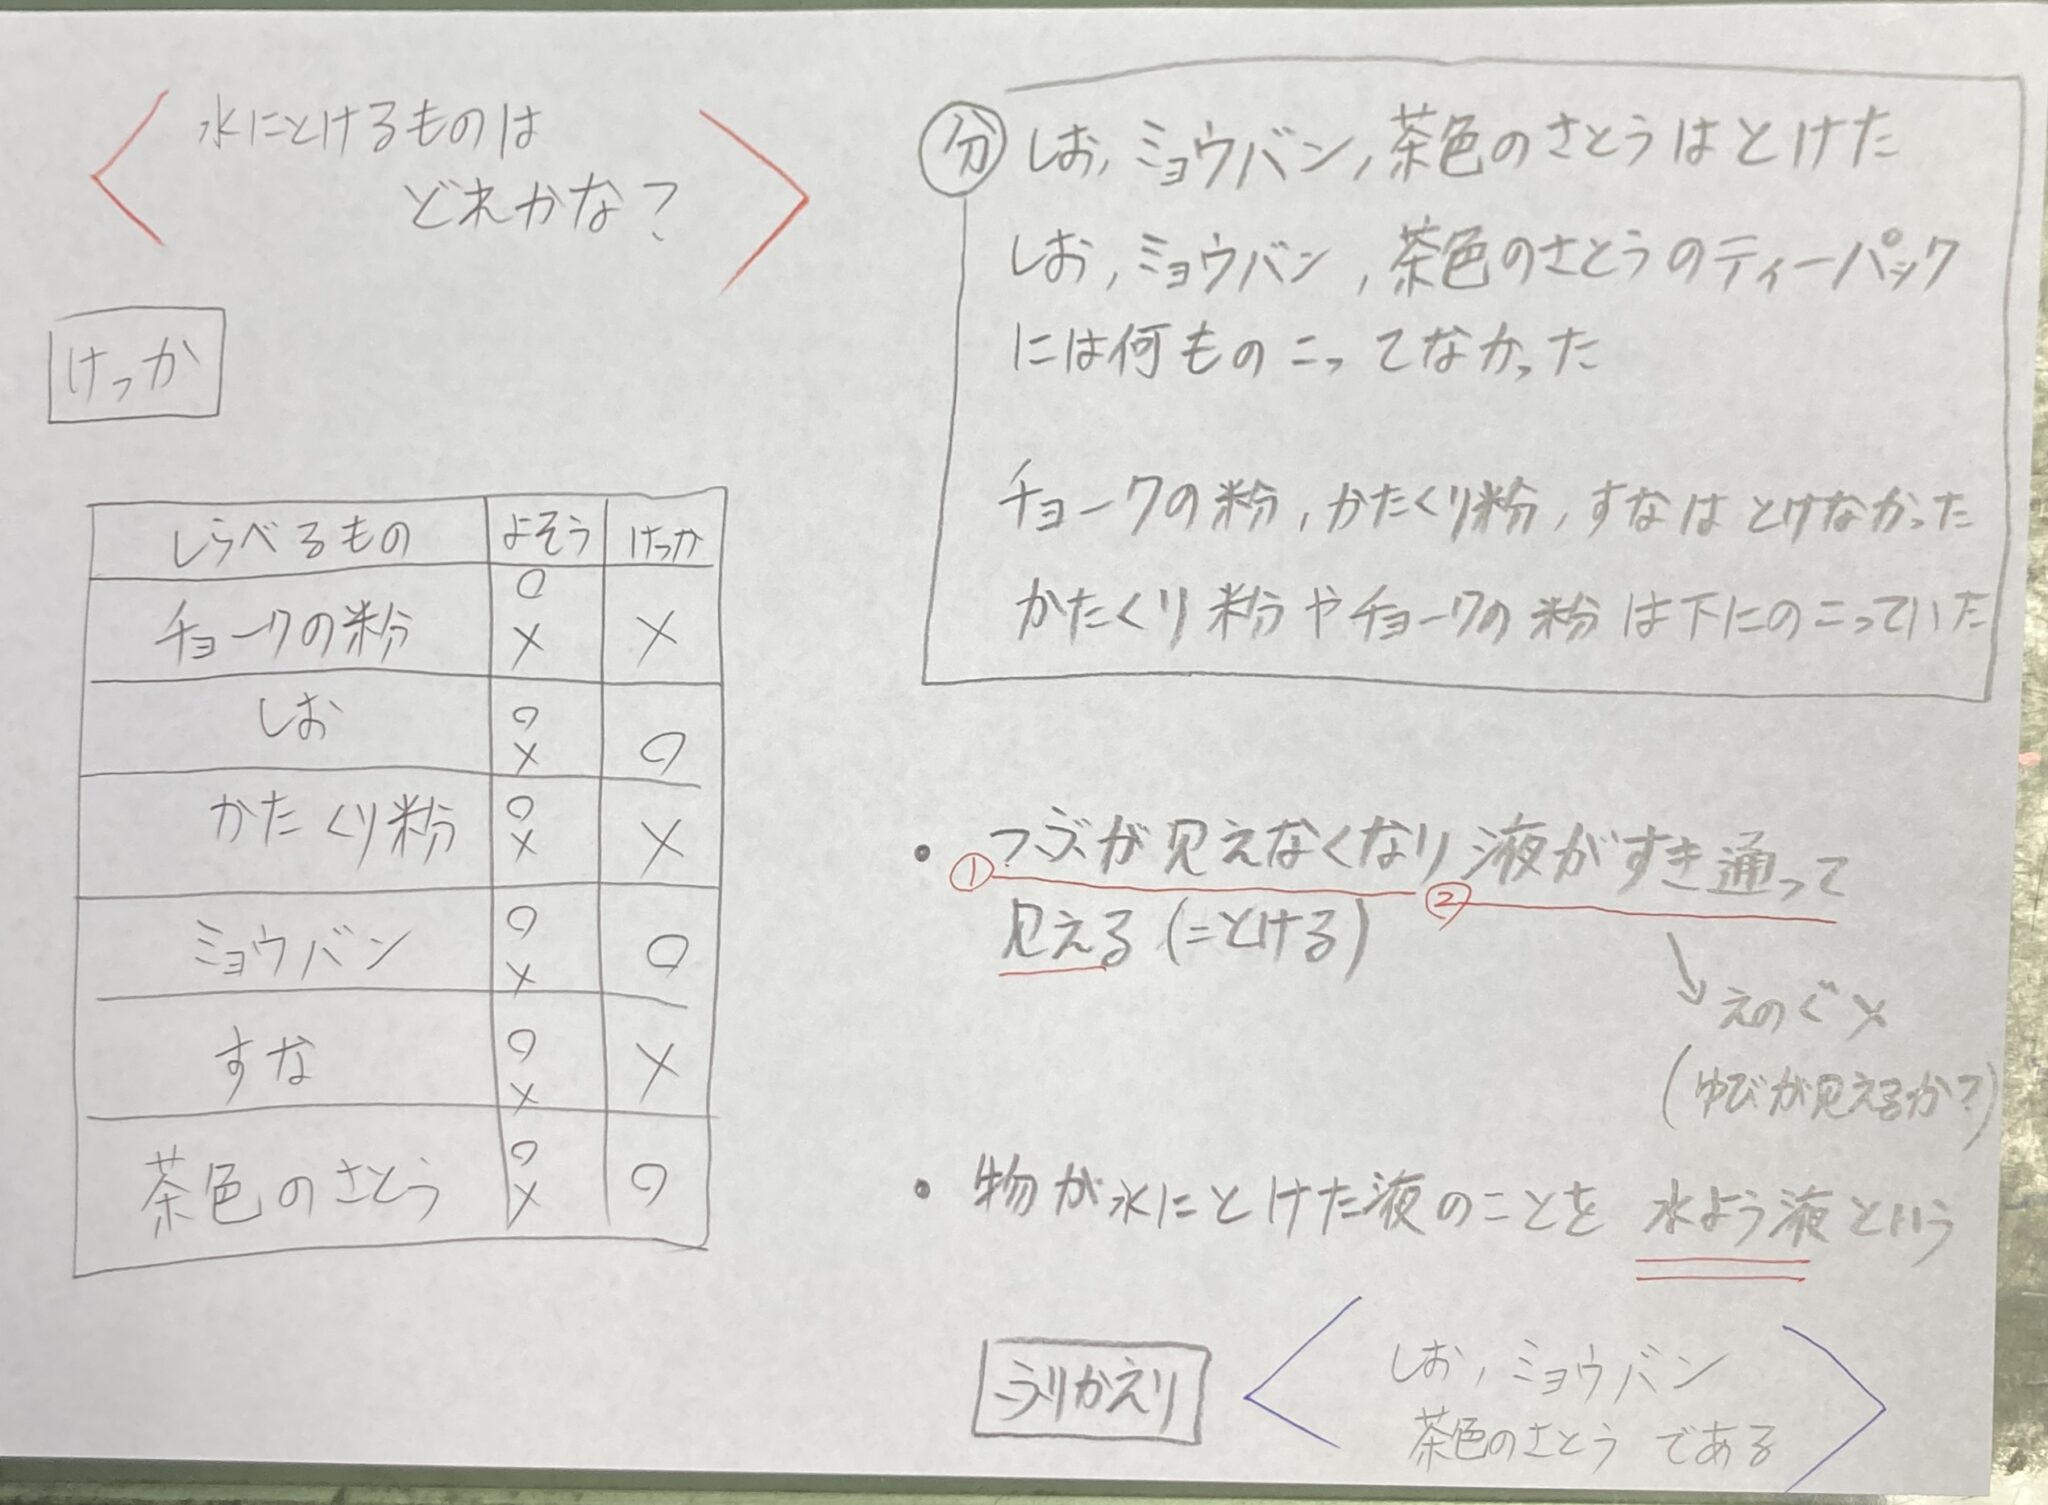 水にとけるものは
どれかな?
けっか
しらべるもの よそう けっか
チョークの粉 ○ × ×
しお ○ × ○
かたくり粉 ○ × ×
ミョウバン ○ × ○
すな ○ × ×
茶色のさとう ○ × ○
分 しお,ミョウバン,茶色のさとうはとけた
しお,ミョウバン,茶色のさとうのティーパック
には何ものこってなかった
チョークの粉,かたくり粉,すなはとけなかった
かたくり粉やチョークの粉は下にのこっていた
・①つぶが見えなくなり②液がすき通って
見える(=とける)
↘えのぐ×
(ゆびが見えるか?)
・物が水にとけた液のことを水よう液という
ふりかえり
しお,ミョウバン
茶色のさとうである